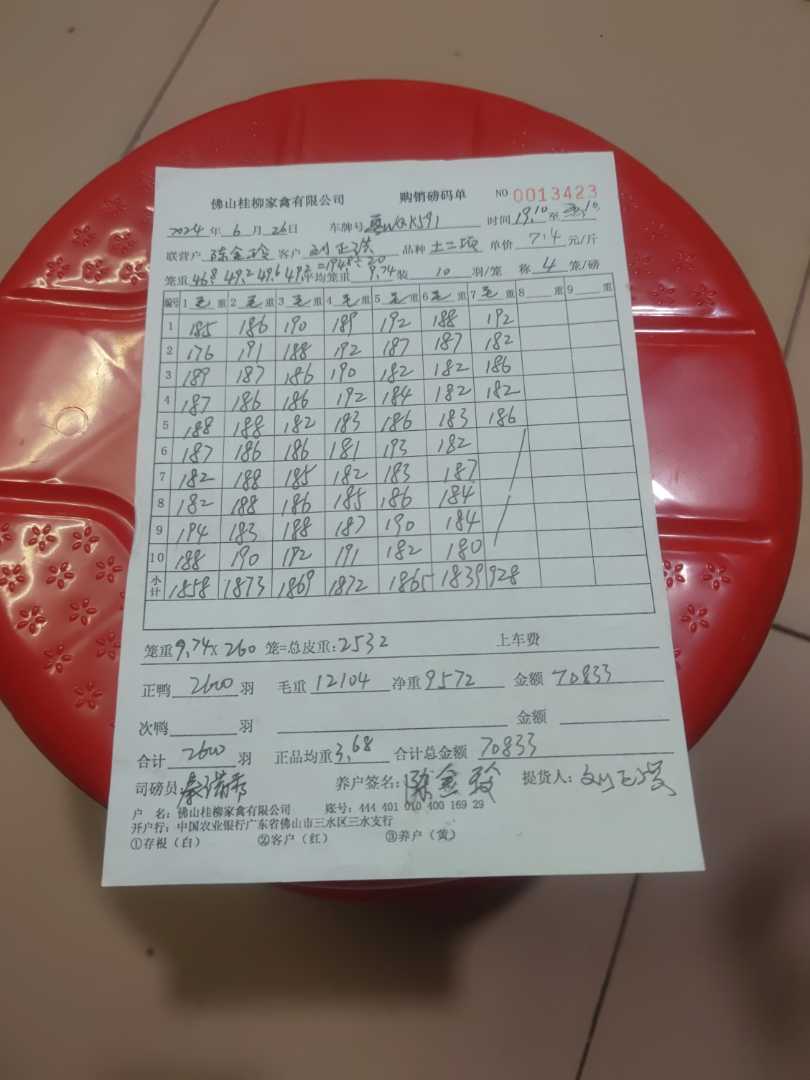 佛山桂柳家禽有限公司 购销磅码单 NO 0013423
2024 年 6 月 26 日 车牌号 K591 时间 19.10 至
联营户 陈金玲 客户 刘正洪 品种 土二项 单价 7.4 元/斤
笼重 46.8 49.2 49.6 49.2 =194.8÷20 平均笼重 9.74 装 10 羽/笼 称 4 笼/磅
编号 1 毛 重 2 毛 重 3 毛 重 4 毛 重 5 毛 重 6 毛 重 7 毛 重 8 重 9 重
1 185 186 190 189 192 188 192
2 176 191 188 192 187 187 182
3 189 187 186 190 182 182 186
4 187 186 186 192 184 182 182
5 188 188 182 183 186 183 186
6 187 186 186 181 193 182
7 182 188 185 182 183 187
8 182 188 186 185 186 184
9 194 183 188 187 190 184
10 188 190 192 191 182 180
小计 1858 1873 1869 1872 1865 1839 928
笼重 9.74 X 260 笼=总皮重: 2532 上车费
正鸭 2600 羽 毛重 12104 净重 9572 金额 70833
次鸭 羽 金额
合计 2600 羽 正品均重 3.68 合计总金额 70833
司磅员: 养户签名: 陈金玲 提货人: 刘正洪
户 名: 佛山桂柳家禽有限公司 账号: 444 401 010 400 169 29
开户行: 中国农业银行广东省佛山市三水区三水支行
①存根（白） ②客户（红） ③养户（黄）